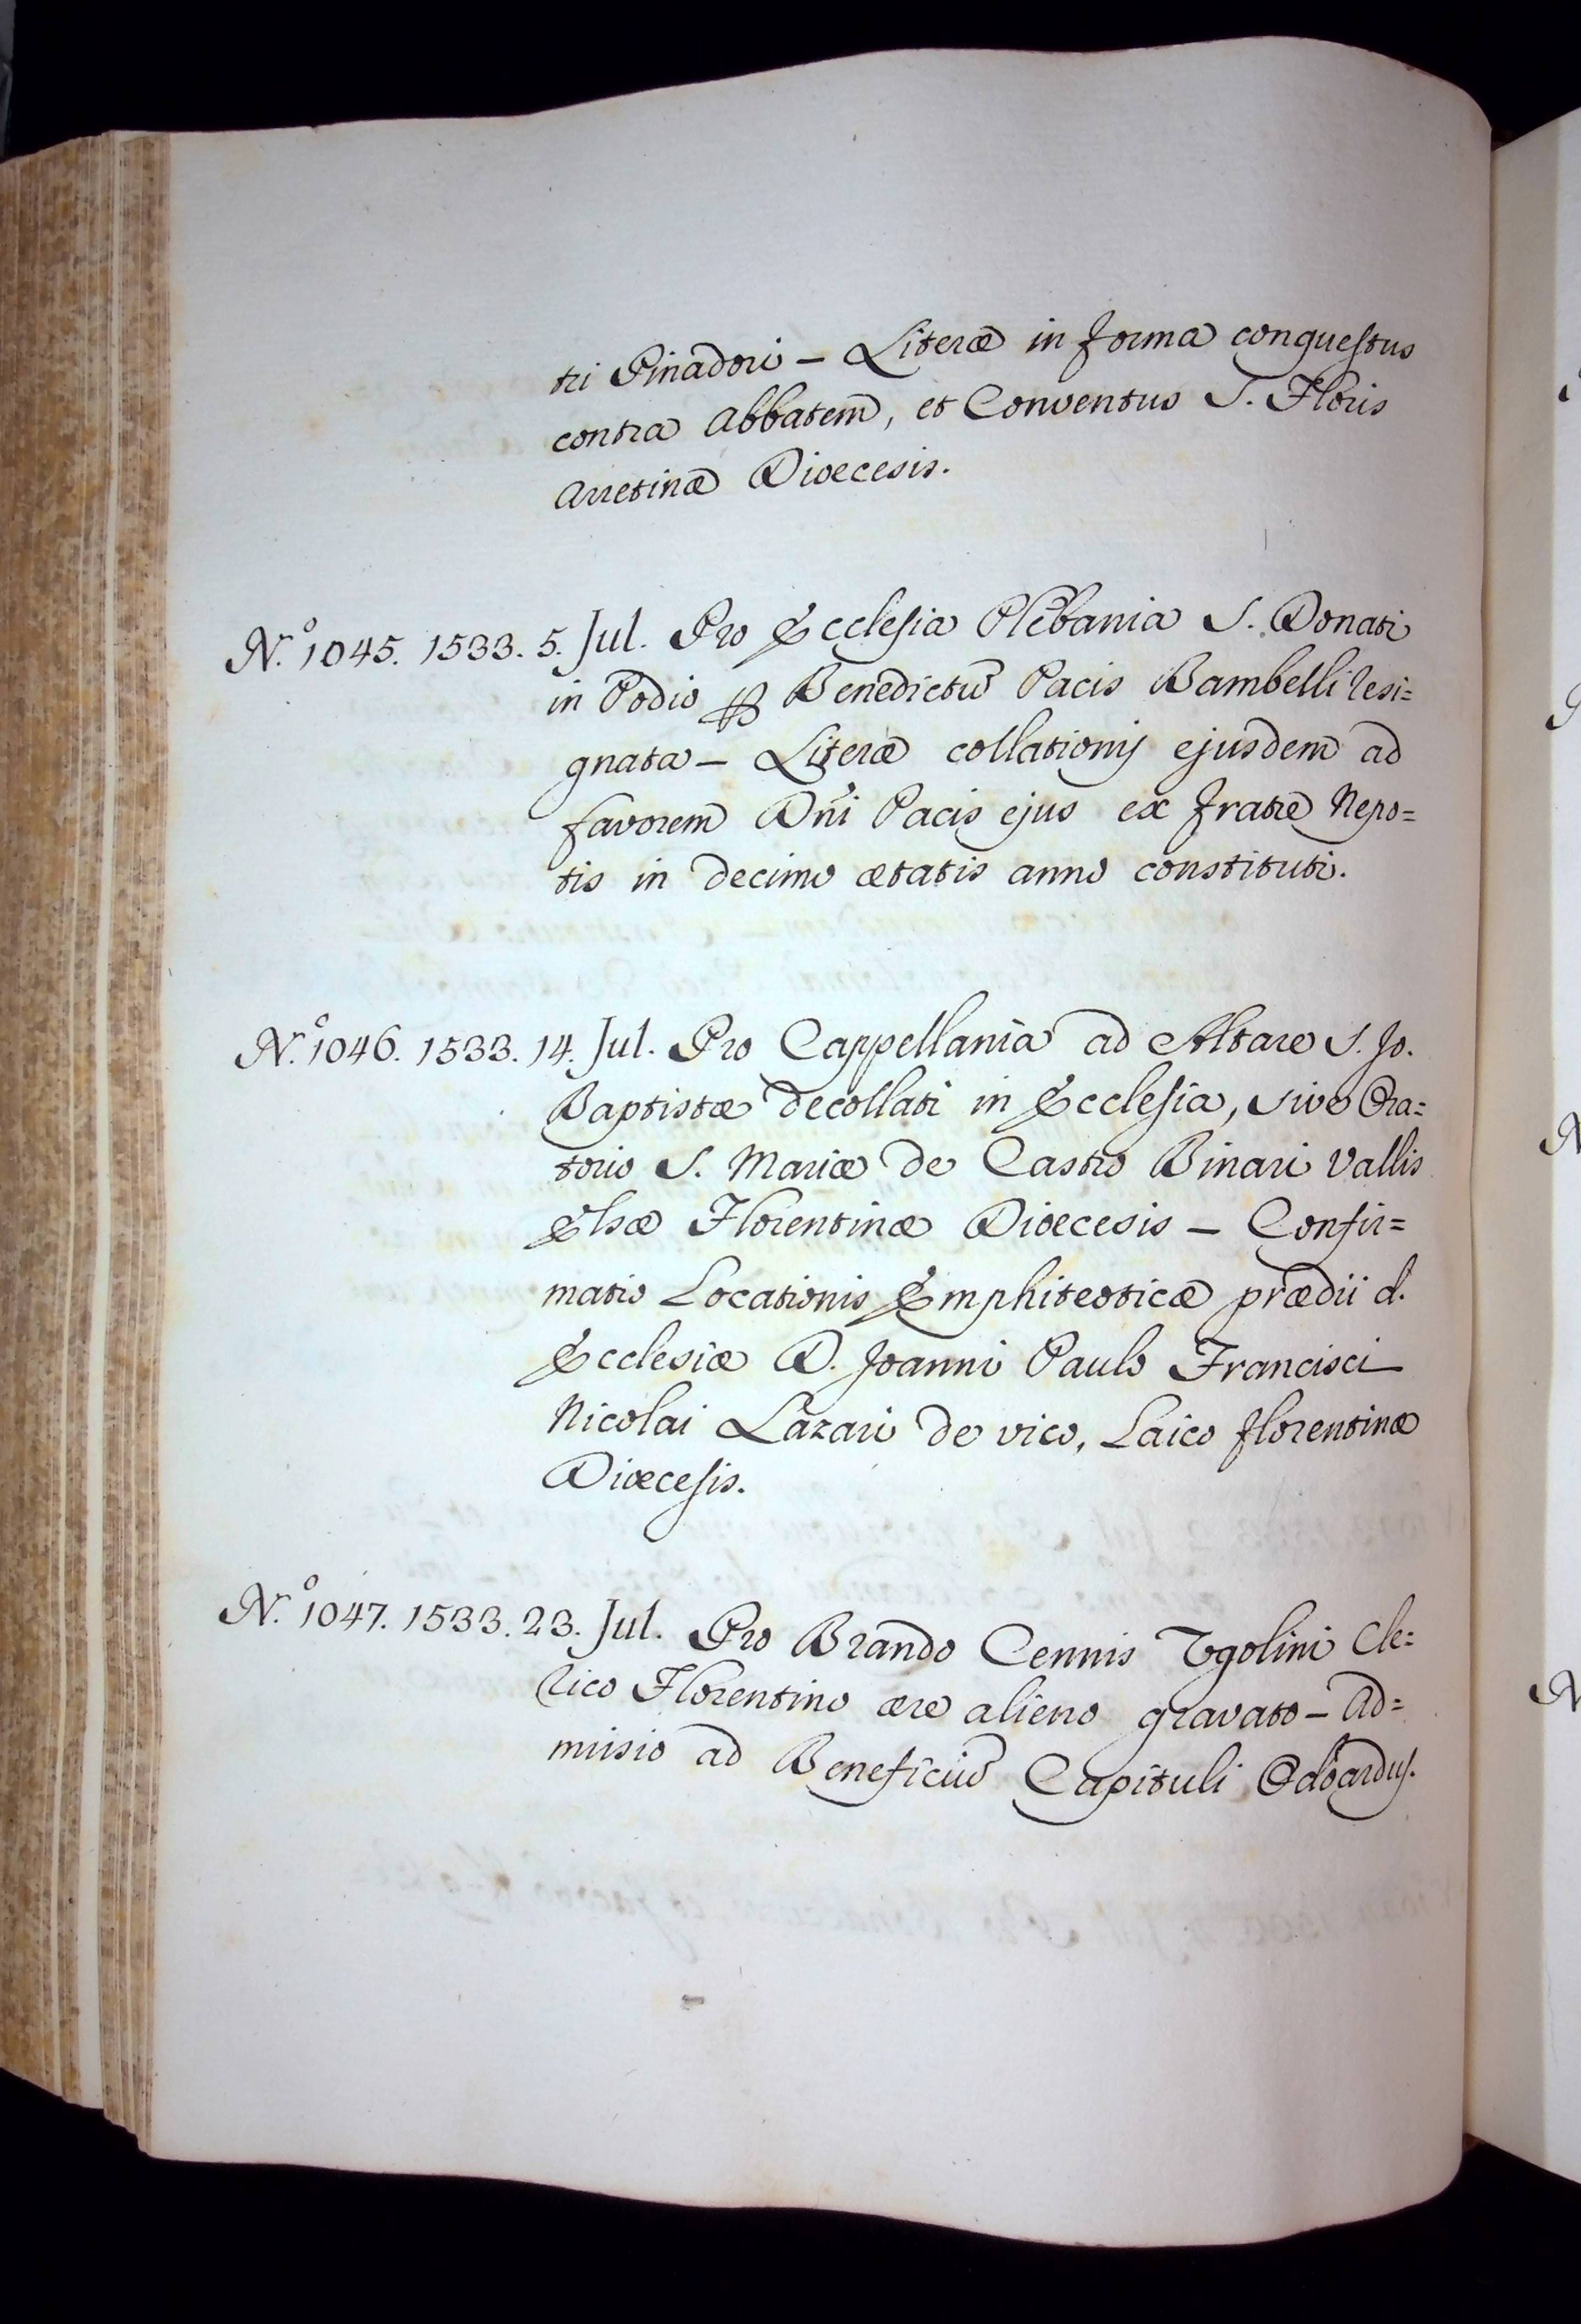 tri Pinadori – Literæ in forma conquestus
contra Abbatem, et Conventus S. Floris
Arretinæ Dioecesis.
N.º 1045. 1533. 5. Jul. Pro Ecclesia Plebania S. Donati
in Podio ꝑ Benedictū Pacis Bambelli resi=
gnata – Literæ collationis ejusdem ad
favorem Dñi Pacis ejus ex fratre Nepo=
tis in decimo ætatis anno constituti.
N.º 1046. 1533. 14. Jul. Pro Cappellania ad Altare S. Jo.
Baptistæ decollati in Ecclesia, sive Ora=
torio S. Mariæ de Castro Binari Vallis
Elsæ Florentinæ Dioecesis – Confir=
matio Locationis Emphiteoticæ prædii d.
Ecclesiæ D. Joanni Paulo Francisci
Nicolai Lazari de vico, Laico florentinæ
Diœcesis.
N.º 1047. 1533. 23. Jul. Pro Brando Cennis Ugolini Cle=
rico Florentino ære alieno gravato – Ad=
missio ad Beneficiū Capituli Odoardus.